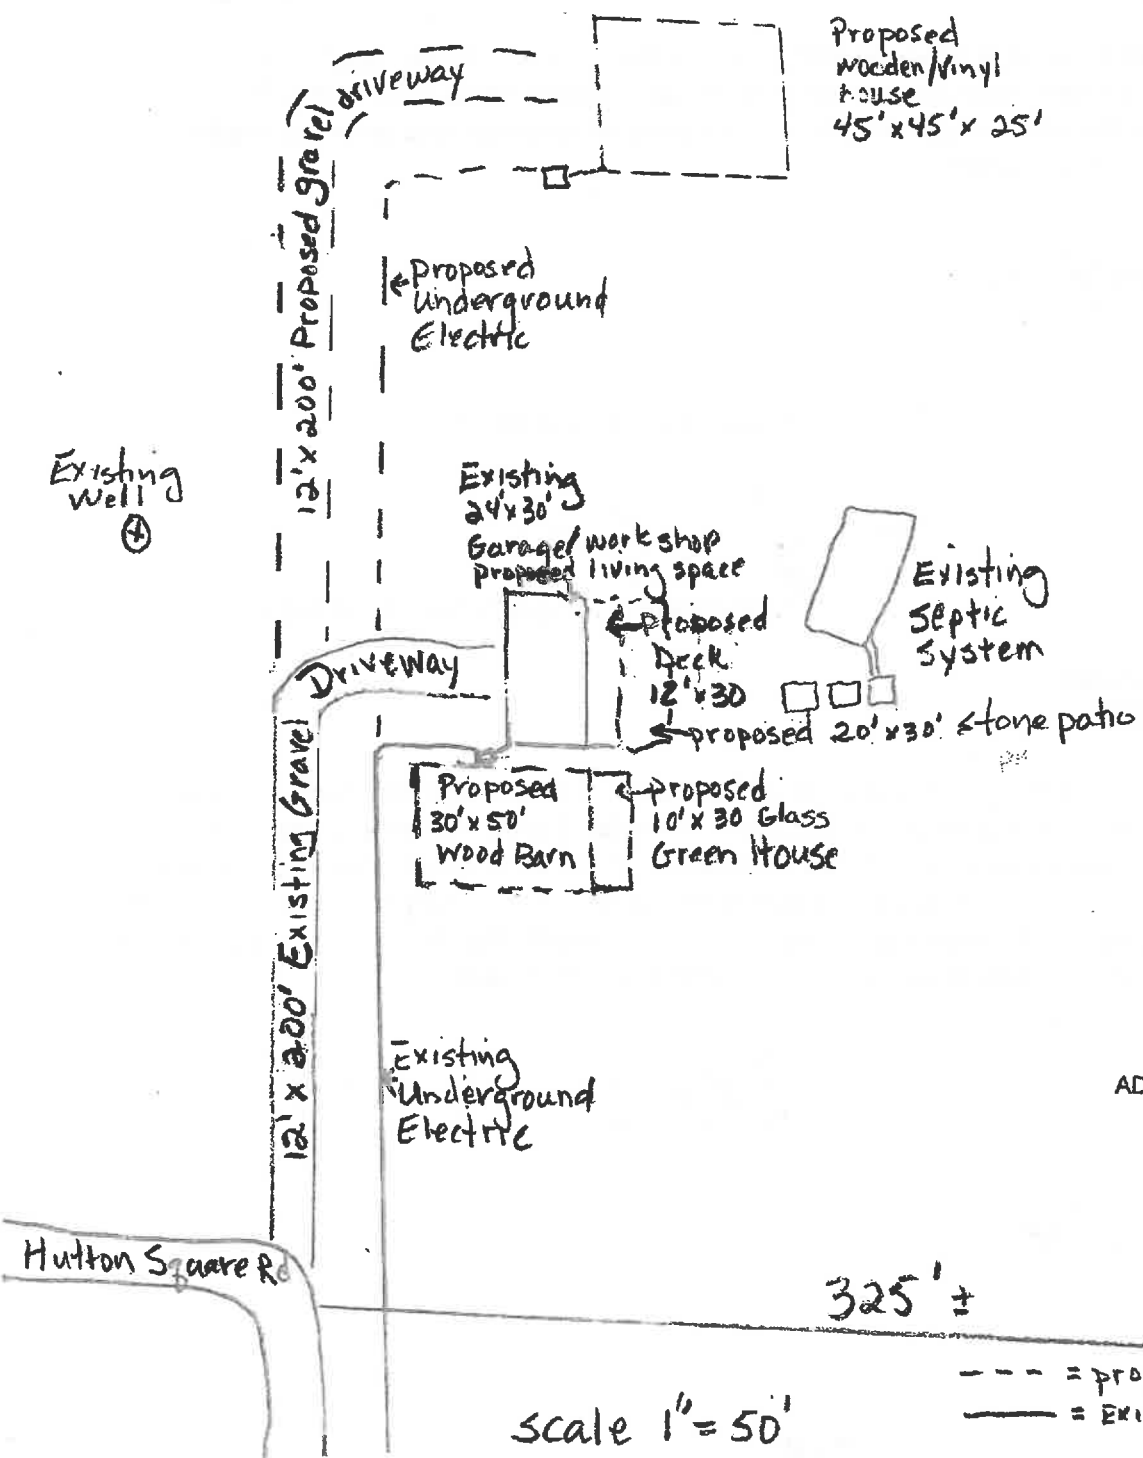 Proposed
wooden/vinyl
house
45'x45'x 25'
12'x200' Proposed gravel driveway
←Proposed
Underground
Electric
Existing
Well
Existing
24'x30'
Garage/workshop
proposed living space
←Proposed
Deck
12'x30
Existing
Septic
System
←proposed 20'x30' stone patio
Driveway
12' x 200' Existing Gravel
Proposed
30'x50'
Wood Barn
←proposed
10'x30 Glass
Green House
Existing
Underground
Electric
AD
Hutton Square Rd
325'±
--- = pro
— = Exi
scale 1"=50'